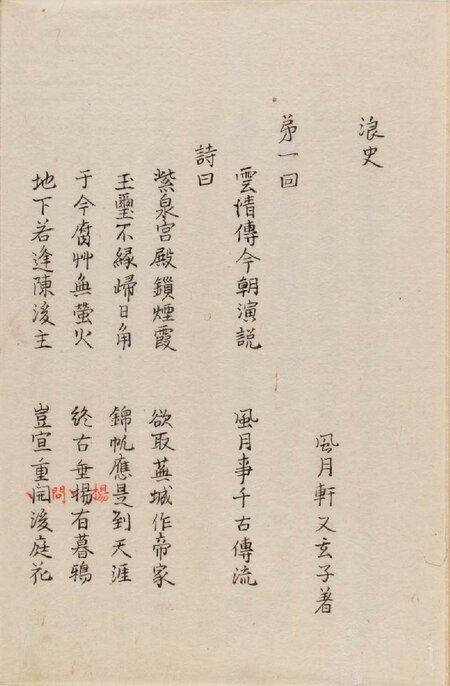 浪史
風月軒又玄子著
苐一回
雲情傳今朝演説 風月事千古傳流
詩曰
紫泉宮殿鎖煙霞 欲取蕪城作帝家
玉璽不緣歸日角 錦帆應是到天涯
于今腐艸無螢火 終古垂楊有暮鴉
揚
地下若逢陳後主 豈宜重開後庭花
問